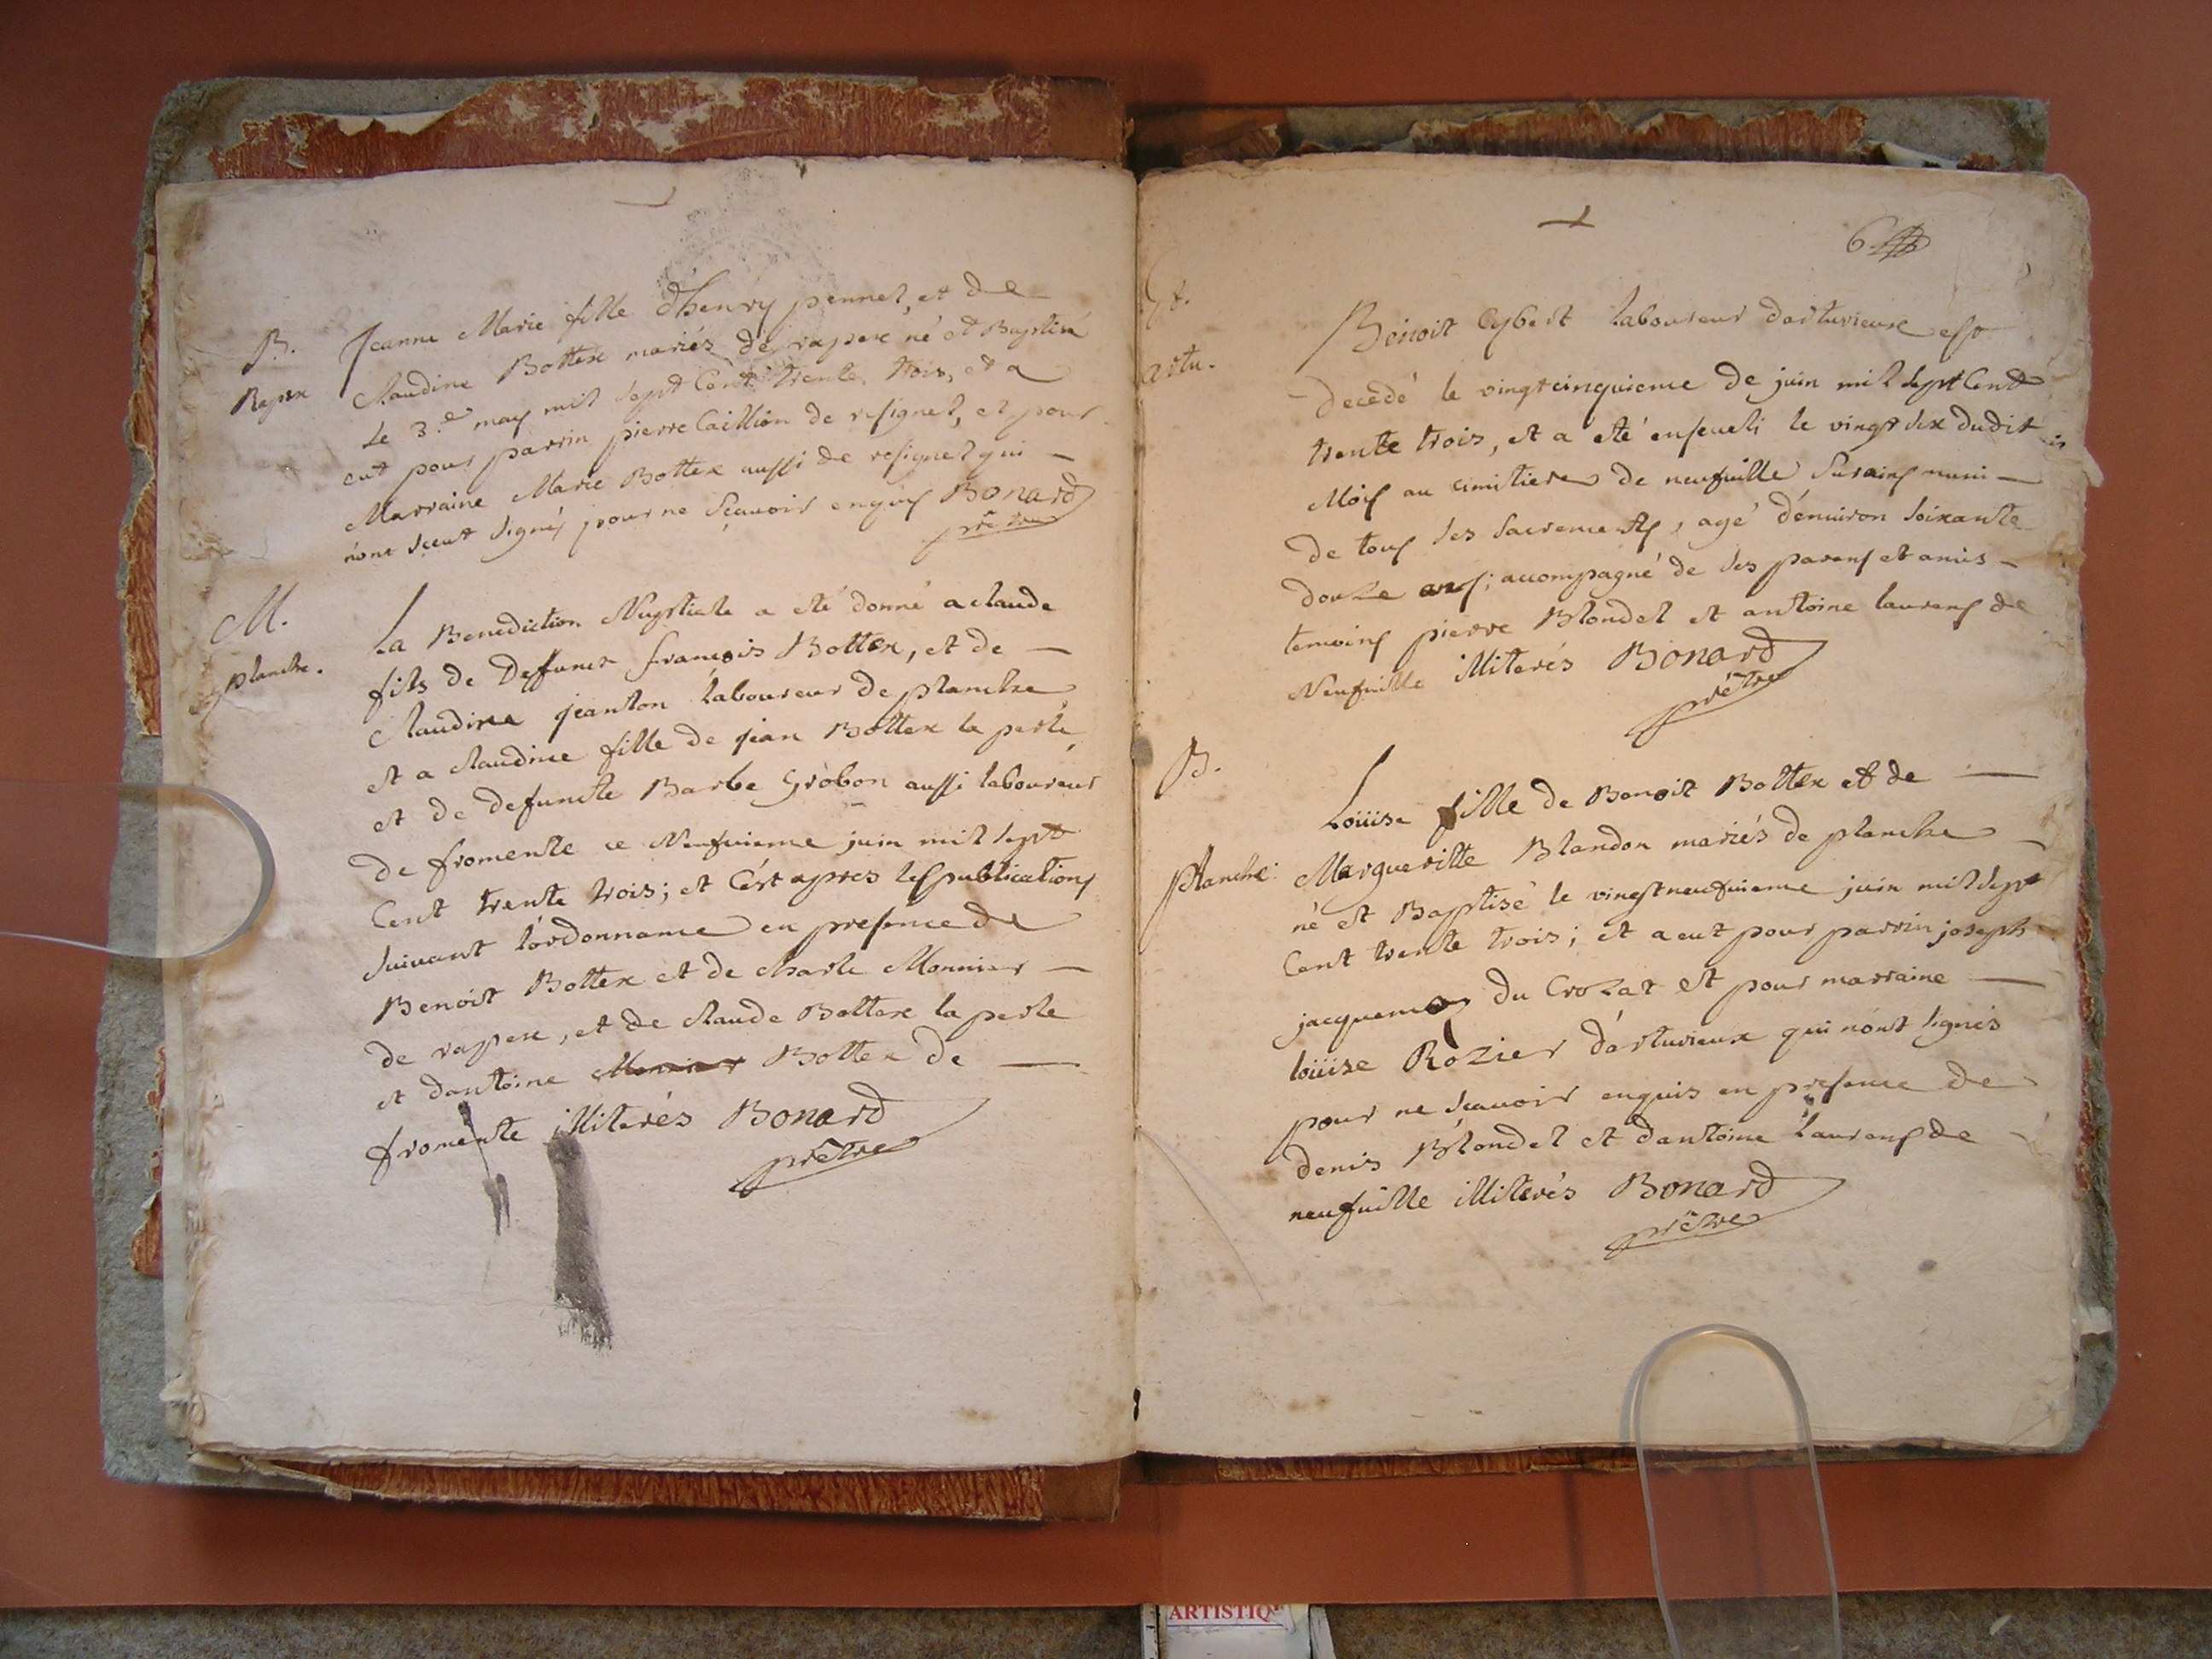 B.
Rapex
Jeanne Marie fille d'henry pennel, et de
Claudine Bottex mariés de rapex né et Baptisé
Le 3.e may mil sept Cent trente trois, et a
eut pour parrin pierre Caillion de resignel, et pour
Marraine Marie Bottex aussi de resignel qui —
n'ont sçeut signés pour ne sçauoir enquis Bonard
M.
planche.
La Benediction Nuptiale a eté donné a claude
fils de Deffunct françois Bottex, et de —
Claudine jeanton laboureur de planche
et a claudine fille de jean Bottex la perle,
et de defuncte Barbe Grobon aussi laboureur
de fromente ce Neufuieme juin mil sept
Cent trente trois; et c'est apres les publications
suivant l'ordonnance en presence de
Benoit Bottex et de charle Monnier —
de rapex, et de claude Bottex la perle
et dantoine Monnier Bottex de —
fromente illiterés Bonard
prêtre
6
artu.
Benoit Cybert laboureur dartuvieux est
decedé le vingtcinquieme de juin mil sept Cent
trente trois, et a eté enseueli le vingt six dudit
Mois au cimitiere de neufuille surains muni —
de tous ses sacrements, agé d'enuiron soixante
douze ans; accompagné de ses parens et amis —
temoins pierre Blondel et antoine laurens de
Neufuille illiterés Bonard
prêtre
B.
planche.
Loüise fille de Benoit Bottex et de —
Margueritte Blandon mariés de planche —
né et Baptisé le vingtneufuieme juin mil sept
Cent trente trois; et a eut pour parrin joseph
jacquemoz du Crozat et pour marraine —
loüise Rozier d'artuvieux qui n'ont signés
pour ne sçauoir enquis en presence de
denis Blondel et dantoine Laurens de
neufuille illiterés Bonard
prêtre
ARTISTIQ